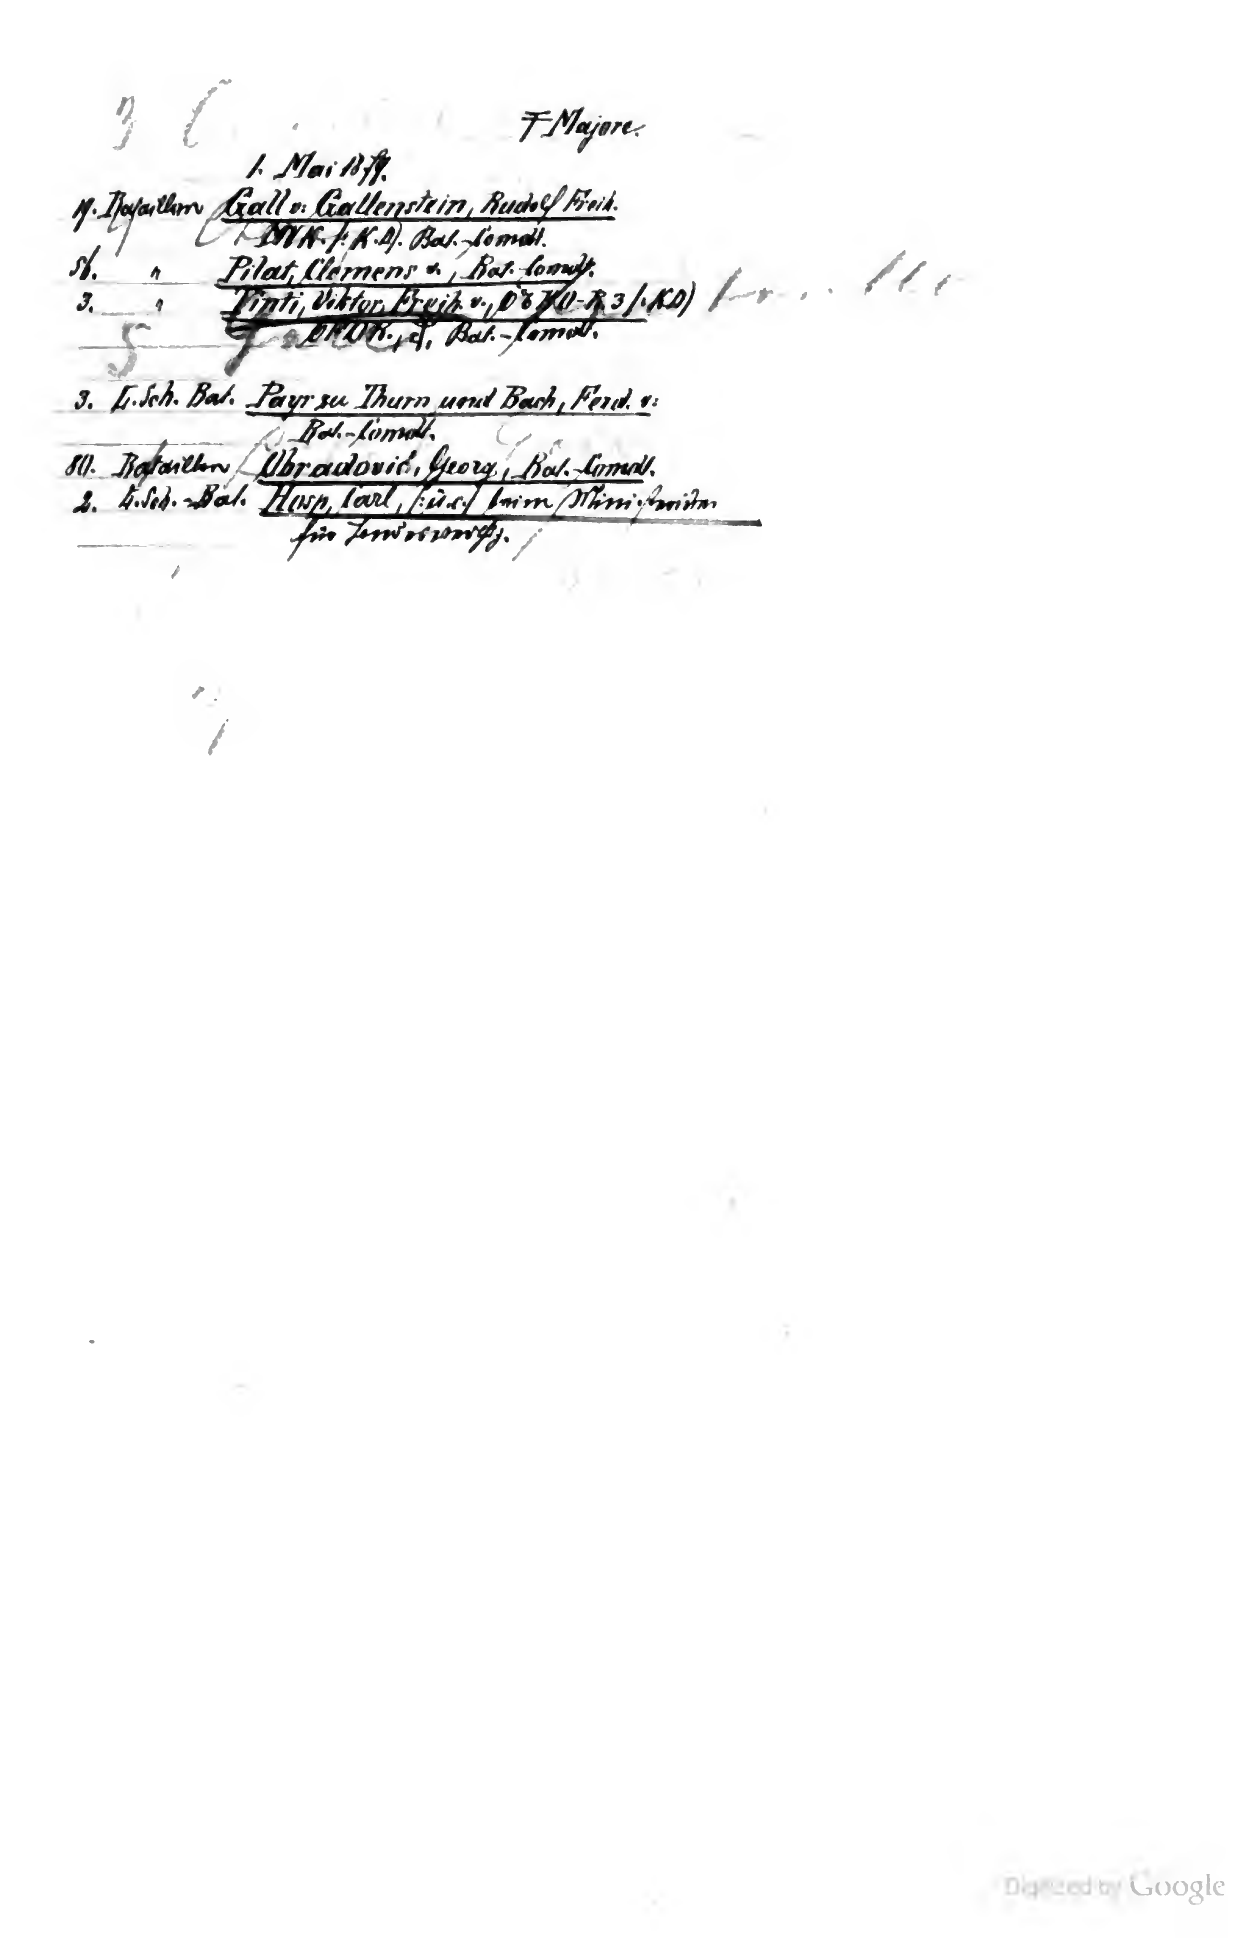 Majore.
1. Mai 1879.
Bataillon Gall v. Gallenstein, Rudolf Freih.
MVK. (K.D). Bat.-Comdt.
56. " Pilat, Clemens v., Bat.-Comdt.
3. " Pinti, Viktor, Freih. v., KO-R. 3 (KD)
Bat.-Comdt.
3. L. Sch. Bat. Payr zu Thurn und Bach, Ferd. v.
Bat.-Comdt.
80. Bataillon Obradović, Georg, Bat.-Comdt.
2. L. Sch.-Bat. Hosp, Carl, (ü.c.) beim Ministerium
für Landesverthg.
Digitized by Google